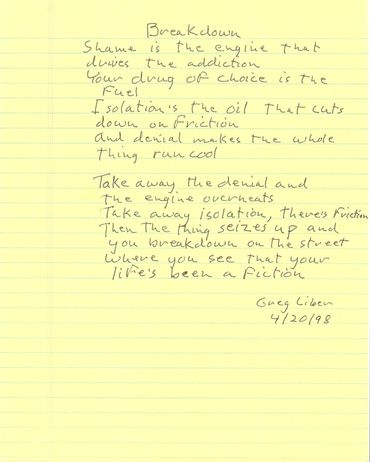 Breakdown
Shame is the engine that
drives the addiction
Your drug of choice is the
Fuel
Isolation's the oil that cuts
down on friction
and denial makes the whole
thing run cool
Take away the denial and
the engine overheats
Take away isolation, there's friction
Then the thing seizes up and
you breakdown on the street
where you see that your
life's been a fiction
Greg Liber
4/20/98